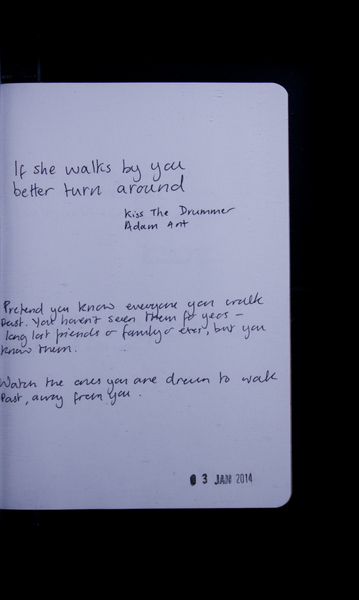 If she walks by you
better turn around
Kiss The Drummer
Adam Ant
Pretend you know everyone you walk
past. You haven't seen them for yeas –
long lost friends or family or exes, but you
know them.
Watch the ones you are drawn to walk
Past, away from you.
03 JAN 2014